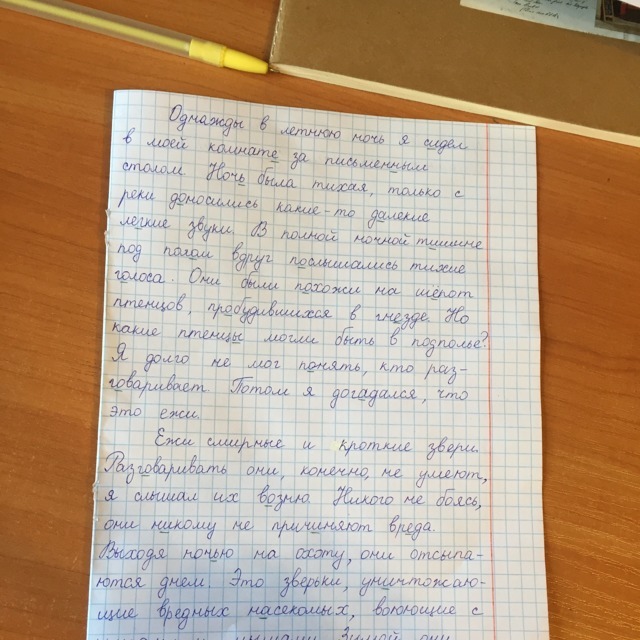 Однажды в летнюю ночь я сидел
в моей комнате за письменным
столом. Ночь была тихая, только с
реки доносились какие-то далекие
легкие звуки. В полной ночной тишине
под полом вдруг послышались тихие
голоса. Они были похожи на шёпот
птенцов, пробудившихся в гнезде. Но
какие птенцы могли быть в подполье?
Я долго не мог понять, кто раз-
говаривает. Потом я догадался, что
это ежи.
Ежи смирные и кроткие звери.
Разговаривать они, конечно, не умеют,
я слышал их возню. Никого не боясь,
они никому не причиняют вреда.
Выходя ночью на охоту, они отсыпа-
ются днем. Это зверьки, уничтожаю-
щие вредных насекомых, воюющие с
мышами. Зимой они